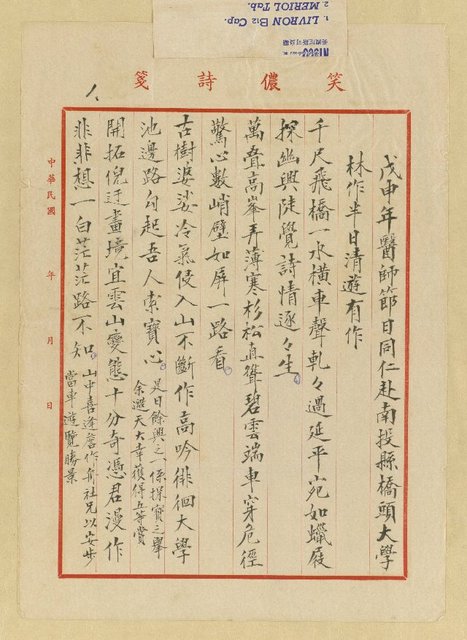 笑儂詩箋
1. LIVRON B12 Cap.
2. MERIOL Tab.
戊申年醫師節日同仁赴南投縣橋頭大學
林作半日清遊有作
千尺飛橋一水橫車聲軋々過延平宛如蠟屐
探幽興陡覺詩情逐々生
萬叠高峯弄薄寒杉松直聳碧雲端車穿危徑
驚心數峭壁如屏一路看
古樹婆娑冷氣侵入山不斷作高吟徘徊大學
池邊路勾起吾人索寶心
是日餘興之一係探寶之舉
余邀天大幸獲得五等賞
開拓倪迂畫境宜雲山變態十分奇憑君漫作
非非想一白茫茫路不知
山中喜逢詹作舟社兄以安步
當車遊覽勝景
中華民國 年 月 日